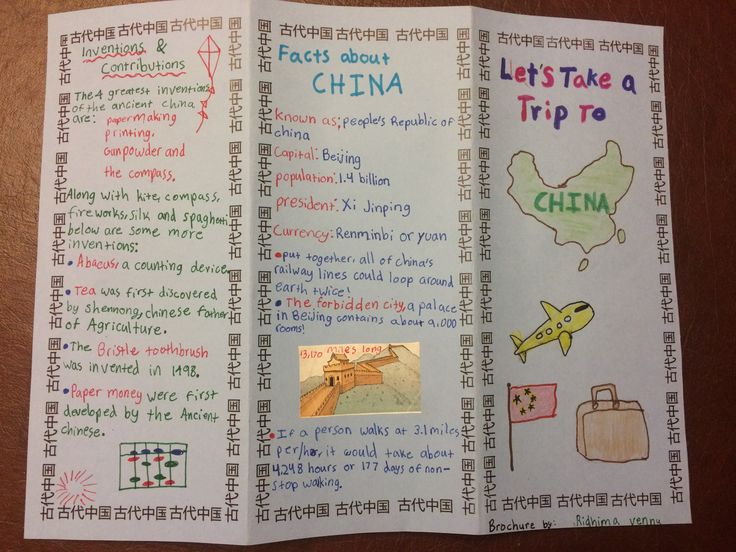 古代中国 古代中国 古代中国
Inventions &
Contributions
The 4 greatest inventions
of the ancient china
are: papermaking
printing,
Gunpowder and
the compass.
Along with kite, compass,
fireworks, silk and spaghetti
below are some more
inventions:
• Abacus, a counting device
• Tea was first discovered
by shennong, chinese father
of Agriculture.
• The Bristle toothbrush
was invented in 1498.
• Paper money were first
developed by the Ancient
chinese.
古代中国 古代中国 古代中国
古代中国 古代中国 古代中国
Facts about
CHINA
Known as: people's Republic of
china
Capital: Beijing
population: 1.4 billion
president: Xi Jinping
Currency: Renminbi or yuan
• put together, all of china's
railway lines could loop around
earth twice!
• The forbidden city, a palace
in Beijing contains about 9,000
rooms!
13,170 miles long
• If a person walks at 3.1 miles
per/hr, it would take about
4,248 hours or 177 days of non-
stop walking.
古代中国 古代中国 古代中国
古代中国 古代中国 古代中国
Let's Take a
Trip To
CHINA
古代中国 古代中国 古代中国
Brochure by: Ridhima vennu